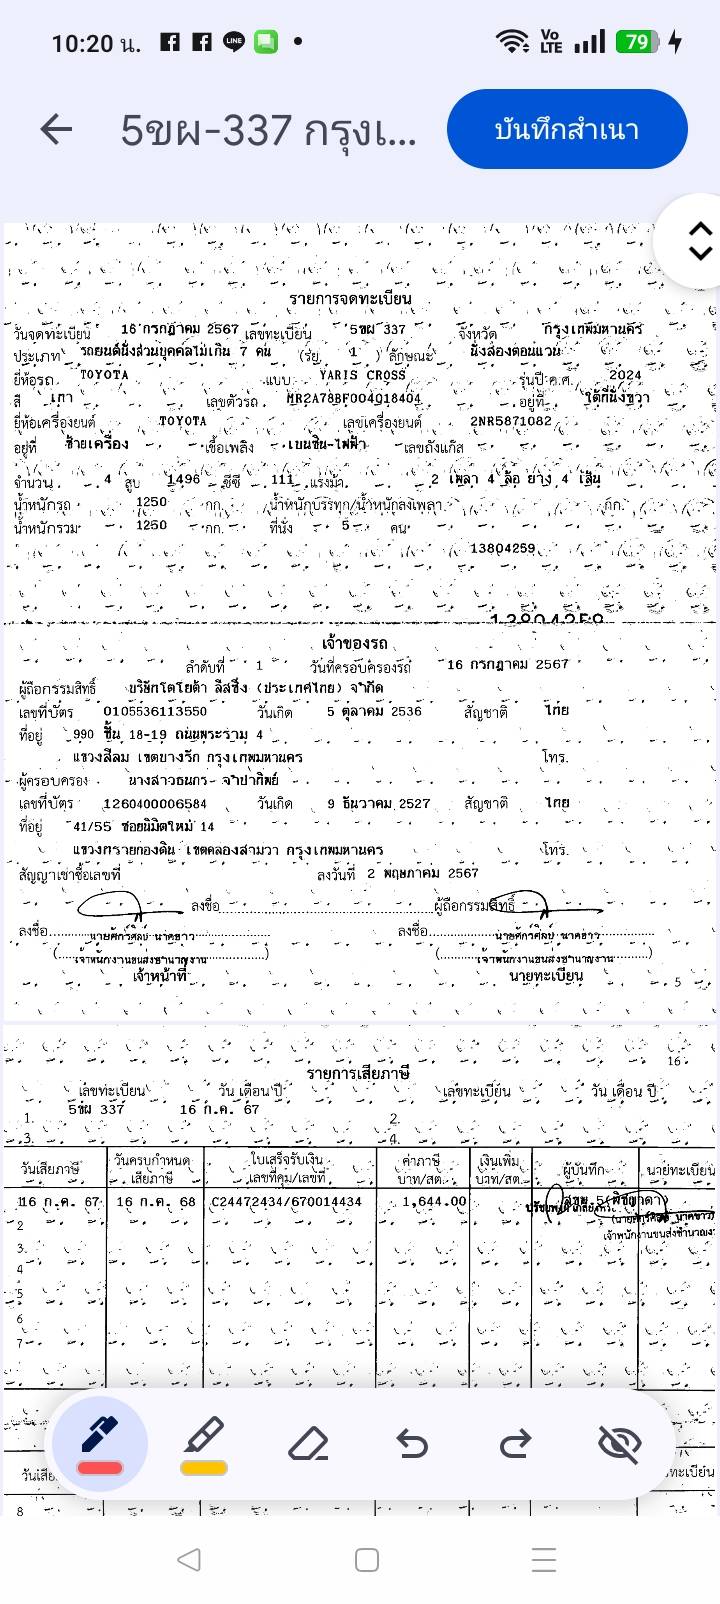 10:20 น. LINE Vo LTE 79
5ขผ-337 กรุงเ... บันทึกสำเนา
รายการจดทะเบียน
วันจดทะเบียน 16 กรกฎาคม 2567 เลขทะเบียน 5ขผ 337 จังหวัด กรุงเทพมหานคร
ประเภท รถยนต์นั่งส่วนบุคคลไม่เกิน 7 คน (รย. 1 ) ลักษณะ นั่งสองตอนแวน
ยี่ห้อรถ TOYOTA แบบ YARIS CROSS รุ่นปี ค.ศ. 2024
สี เทา เลขตัวรถ MR2A78BF004018404 อยู่ที่ ใต้ที่นั่งขวา
ยี่ห้อเครื่องยนต์ TOYOTA เลขเครื่องยนต์ 2NR5871082
อยู่ที่ ซ้ายเครื่อง เชื้อเพลิง เบนซิน-ไฟฟ้า เลขถังแก๊ส
จำนวน 4 สูบ 1496 ซีซี 111 แรงม้า 2 เพลา 4 ล้อ ยาง 4 เส้น
น้ำหนักรถ 1250 กก. น้ำหนักบรรทุก/น้ำหนักลงเพลา กก.
น้ำหนักรวม 1250 กก. ที่นั่ง 5 คน
13804259
13804259
เจ้าของรถ
ลำดับที่ 1 วันที่ครอบครองรถ 16 กรกฎาคม 2567
ผู้ถือกรรมสิทธิ์ บริษัทโตโยต้า ลีสซิ่ง (ประเทศไทย) จำกัด
เลขที่บัตร 0105536113550 วันเกิด 5 ตุลาคม 2536 สัญชาติ ไทย
ที่อยู่ 990 ชั้น 18-19 ถนนพระราม 4
แขวงสีลม เขตบางรัก กรุงเทพมหานคร โทร.
ผู้ครอบครอง นางสาวธนกร จำปาทิพย์
เลขที่บัตร 1260400006584 วันเกิด 9 ธันวาคม 2527 สัญชาติ ไทย
ที่อยู่ 41/55 ซอยนิมิตใหม่ 14
แขวงทรายกองดิน เขตคลองสามวา กรุงเทพมหานคร โทร.
สัญญาเช่าซื้อเลขที่ ลงวันที่ 2 พฤษภาคม 2567
ลงชื่อ ผู้ถือกรรมสิทธิ์
ลงชื่อ นายศักร์ศิลป์ นาคขาว ลงชื่อ นายศักร์ศิลป์ นาคขาว
(เจ้าพนักงานขนส่งชำนาญงาน) (เจ้าพนักงานขนส่งชำนาญงาน)
เจ้าหน้าที่ นายทะเบียน
5
16
รายการเสียภาษี
เลขทะเบียน วัน เดือน ปี เลขทะเบียน วัน เดือน ปี
1. 5ขผ 337 16 ก.ค. 67 2.
3. 4.
วันเสียภาษี วันครบกำหนดเสียภาษี ใบเสร็จรับเงิน เลขที่คุม/เลขที่ ค่าภาษี บาท/สต. เงินเพิ่ม บาท/สต. ผู้บันทึก นายทะเบียน
1 16 ก.ค. 67 16 ก.ค. 68 C24472434/670014434 1,644.00
2
3.
4
5
6
7
วันเสีย ทะเบียน
8